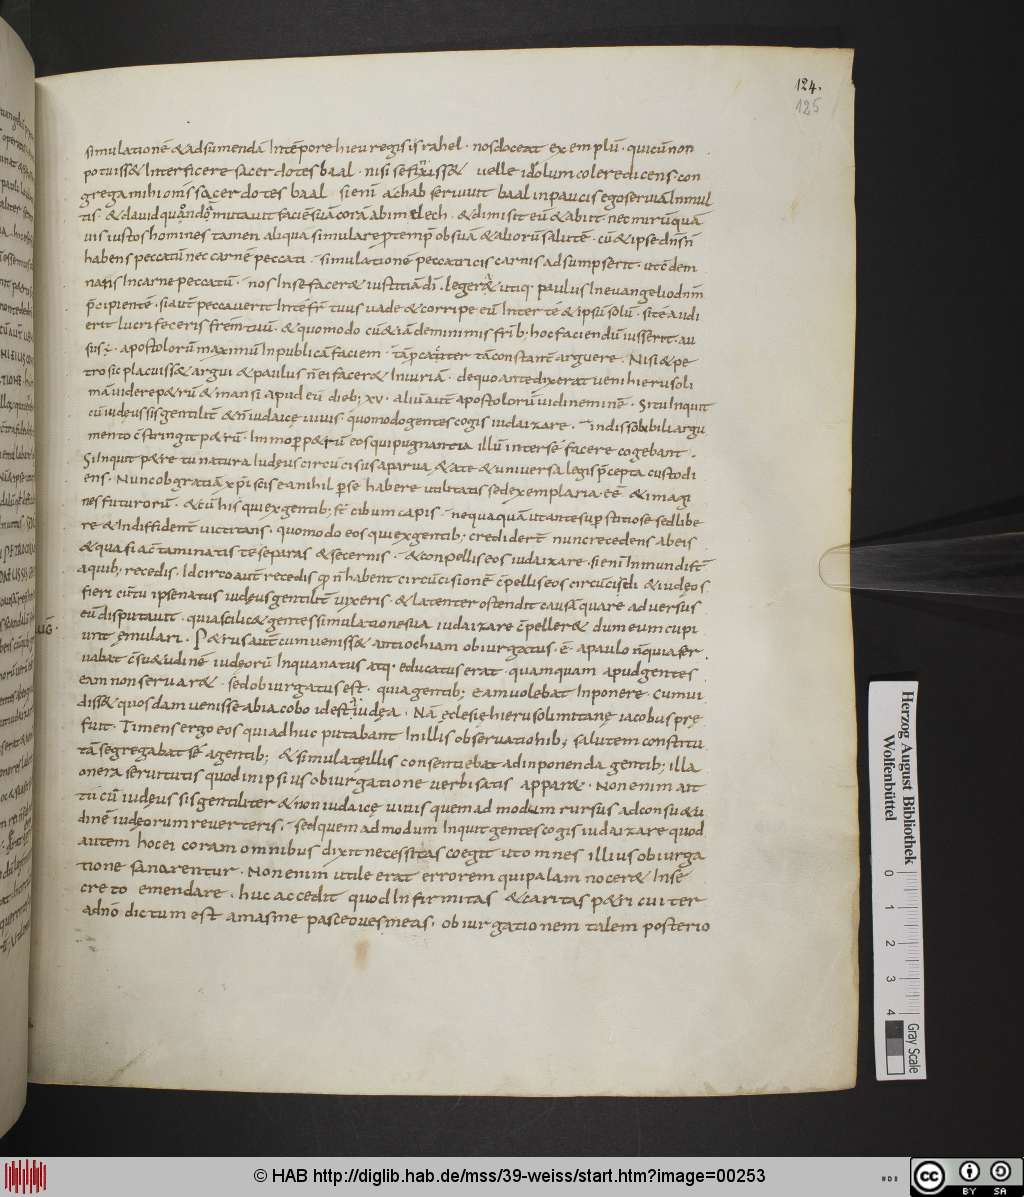 124.
125
simulationē & adsumendā Intēpore hieu regis israhel · nos doceat exemplū · qui cū non
potuiss& Interficere sacerdotes baal · nisi se fixiss& uelle idolum colere dicens · con
gregamihi om̄s sacerdotes baal si enī achab seruiuit baal in paucis ego seruiā In mul
tis · & dauid quando mutauit faciē suā corā abimelech · & dimisit eū & abiit nec mirū quā
uis iustos homines tamen aliqua simulare ꝓ tempr̄ ob suā & aliorū salutē · cū & ipse dn̄s nr̄
habens peccatū nec carnē peccati · simulationē peccatricis carnis adsumpserit · ut cōdem
natis In carne peccatū · nos In se facer& iustitiā dī · leger& utiq· paulus In euangelio dn̄m
p̄cipientē · si aut̄ peccauerit Intē fr̄ tuus uade & corripe eū Inter te & ipsū solū · si te audi
erit lucrifeceris frēm tuū · & quomodo cū & iā de minimis frīb; hoc faciendū iusserit · au
sus ē · apostolorū maximū In publicā faciem · tā tā constant̄ arguere · Nisi & pe
tro sic placuiss& argui & paulus n̄ ei facer& Iniuriā · de quo ante dixerat ueni hierusoli
mā uidere p&rū & mansi apud eū dieb; xv · aliū aut̄ apostolorū uidi neminē · Si tu Inquit
cū iudeus sis gentilit̄ & n̄ iudaice uiuis quomodo gentes cogis iudaizare · indissolubili argu
mento c̄stringit p&rū · Immo ꝑ p&rū eos qui pugnantia illū inter se facere cogebant ·
Si Inquit p&re tu natura Iudeus circūcisus a parua &ate & uniuersa legis p̄cepta custodi
ens · Nunc ob gratiā xp̄i scis ea nihil ꝑ se habere utilitatis sed exemplaria ēē & imagi
nes futurorū · & cū his qui ex gentib; st̄ cibum capis · nequaquā ut ante superstitiose sed libe
re & Indiffident̄ uictitans · quomodo eos qui ex gentib; credidert̄ nunc recedens ab eis
& quasi a c̄taminatis te separas & secernis · & conpellis eos iudaizare · si enī In mundi st̄
a quib; recedis · Idcirco aut̄ recedis quod n̄ habent circūcisionē c̄pellis eos circūcidi & iudeos
fieri cū tu ipse natus iudeus gentilit̄ uixeris · & latenter ostendit causā quare aduersus
eū disputauit · quia scilic& gentes simulatione sua iudaizare c̄peller& dum eum cupi
AUG̅ · unt emulari · P&rus aut̄ cum ueniss& antiochiam obiurgatus · ē · a paulo n̄ quia ser
uabat c̄su&udinē iudeorū In qua natus atq· educatus erat · quamquam apud gentes
eam non seruar& · sed obiurgatus est · quia gentib; eam uolebat Inponere · cum ui
diss& quosdam uenisse ab iacobo id est a iudea · Nā eclesie hierusolimitane iacobus pre
fuit · Timens ergo eos qui adhuc putabant In illis obseruationib; salutem constitu
tā segregabat se a gentib; & simulate illis consentiebat ad inponenda gentib; illa
onera seruitutis quod in ipsius obiurgatione uerbi satis appar& · Non enim ait
tu cū iudeus sis gentiliter & non iudaice uiuis quem ad modum rursus ad consu&u
dinē iudeorum reuerteris · sed quem ad modum Inquit gentes cogis iudaizare quod
autem hoc ei coram omnibus dixit necessitas coegit ut omnes illius obiurga
tione sanarentur · Non enim utile erat errorem qui palam nocer& In se
creto emendare · huc accedit quod Infirmitas & caritas p&ri cui ter
a dn̄o dictum est amas me pasce oues meas · obiurgationem talem posterio
Herzog August Bibliothek
Wolfenbüttel
0 1 2 3 4
Gray Scale
© HAB http://diglib.hab.de/mss/39-weiss/start.htm?image=00253
cc BY SA